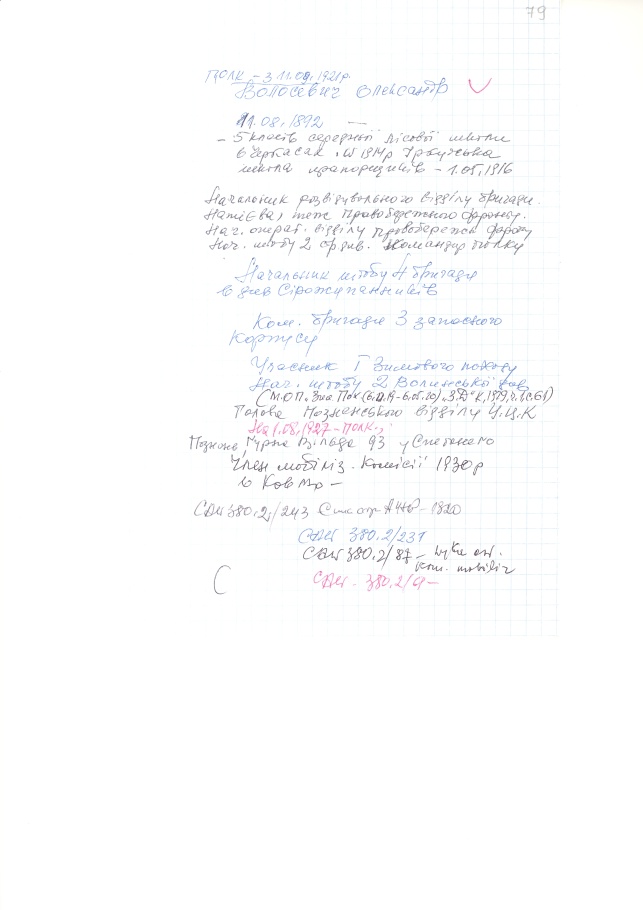 79
Полк. – з 11.08.1921р.
Волосевич Олександр
11.08.1892 —
– 5 класів середньої лісової школи
в Черкасах. W 1914р Іркутська
школа прапорщиків – 1.05.1916
Начальник розвідувального відділу бригади
Натієва, теж Правобережного фронту.
Нач. операт. відділу Правобереж фронту
Нач. штабу 2 див. Командир полку
Начальник штабу 4 бригади
в див Сірожупанників
Ком. бригади 3 запасного
корпусу
Учасник I Зимового походу
Нач. штабу 2 Волинської див
(М.О.П. „Зим Пох (6.12.19–6.05.20) „З.Д" К, 1979, ч.1, с.61)
Голова Познанського відділу У.Ц.К
На 1.08.1927 – полк.,
Познань, Гурна Вільда 93 у
Член мобіліз. комісії 1930р
в Ков
CAW 380.2/243 – 1820
CAW 380.2/231
CAW 380.2/87 –
kom. mobiliz
CAW. 380.2/9 –
C